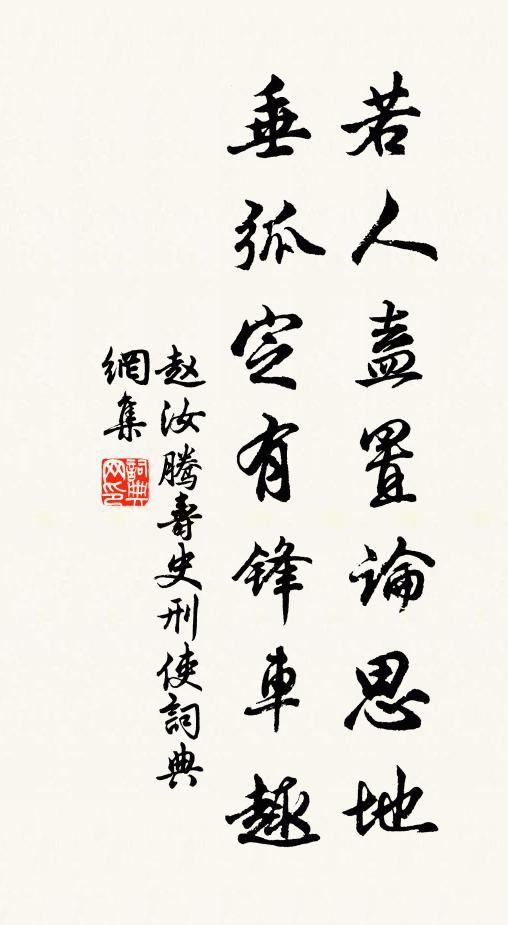 若人盍置論思地
垂弧定有鋒車趣
赵汝腾壽史刑使詞典
網集
詞典網印